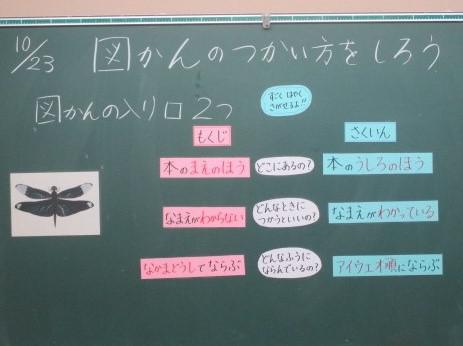 10/23 図かんのつかい方をしろう
図かんの入り口 2つ
すごくはやく
さがせるよ!!
もくじ
さくいん
本のまえのほう
どこにあるの?
本のうしろのほう
なまえがわからない
どんなときに
つかうといいの?
なまえがわかっている
なかまどうしでならぶ
どんなふうに
ならんでいるの?
アイウエオ順にならぶ